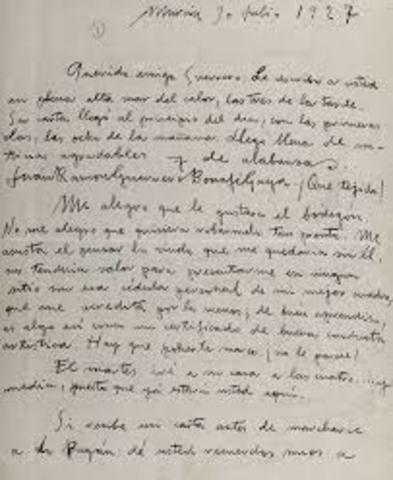 Murcia 30 Julio 1927
①
Querido amigo Guerrero: Le escribo a usted
en plena alta mar del calor, las tres de la tarde.
Su carta llegó al principio del día, con las primeras
olas, las ocho de la mañana. Llega llena de no-
ticias agradables y de alabanzas
Juan Ramón, Guerrero, Bonafé, Gaya. ¡Que tejido!
Me alegro que le gustara el bodegón.
No me alegro que quisiera robármelo tan pronto. Me
asusta el pensar lo viudo que me quedaría sin él,
no tendría valor para presentarme en ningún
sitio sin esa cédula personal de mi mejor cuadro,
que me acredita, por lo menos, de buen aprendiz,
es algo así como un certificado de buena conducta
artística. Hay que ponerle marco ¿no le parece?
El martes iré a su casa a las cuatro y
media, puesto que ya estará usted aquí.
Si recibe mi carta antes de marcharse
a Lo Pagán dé usted recuerdos míos a